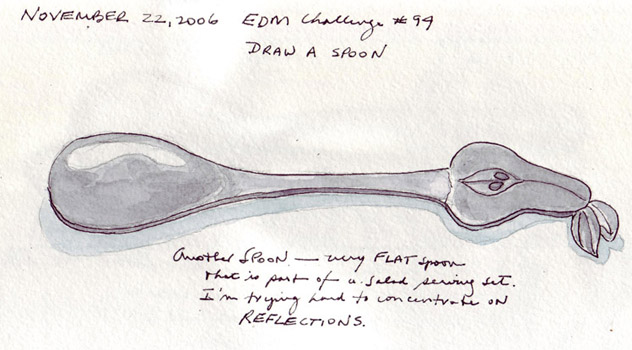 NOVEMBER 22, 2006 EDM Challenge #94
DRAW A SPOON
Another SPOON — very FLAT spoon
that is part of a salad serving set.
I'm trying hard to concentrate ON
REFLECTIONS.